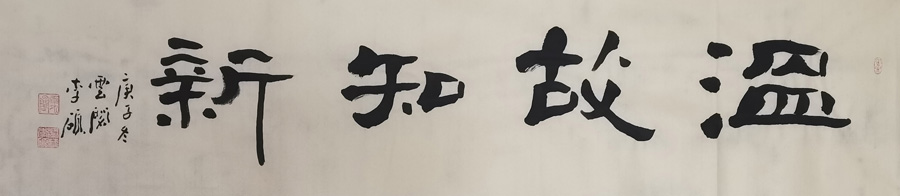 溫故知新
庚子冬
雲閣
李碩